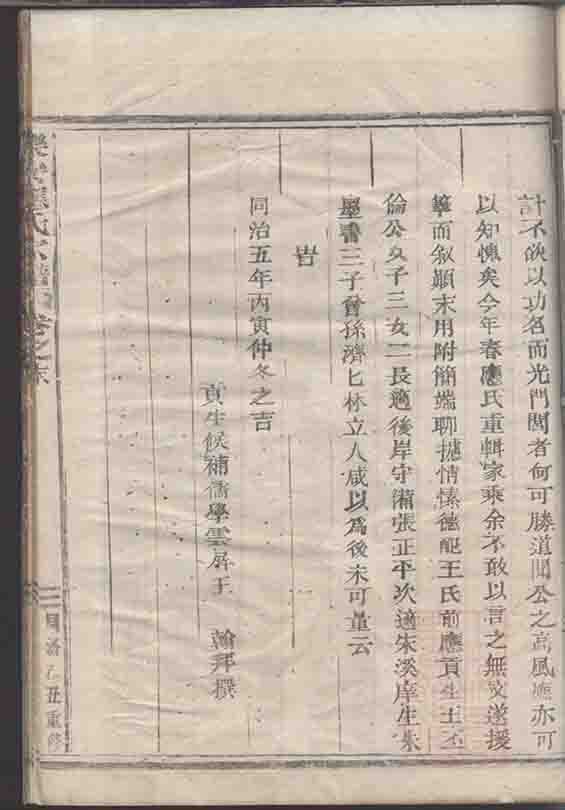 計不欲以功名而光門閭者何可勝道聞公之高風應亦可
以知愧矣今年春應氏重輯家乘余不敢以言之無文遂援
筆而叙顛末用附簡端聊攄情愫德配王氏前應貢生王丕
倫公女子三女二長適後岸守備張正平次適朱溪庠生朱
墨書三子曾孫濟匕林立人咸以為後未可量云
旹
同治五年丙寅仲冬之吉
貢生候補儒學雲屏王 翰拜撰
樂安應氏宗譜 卷之末
同治乙丑重修